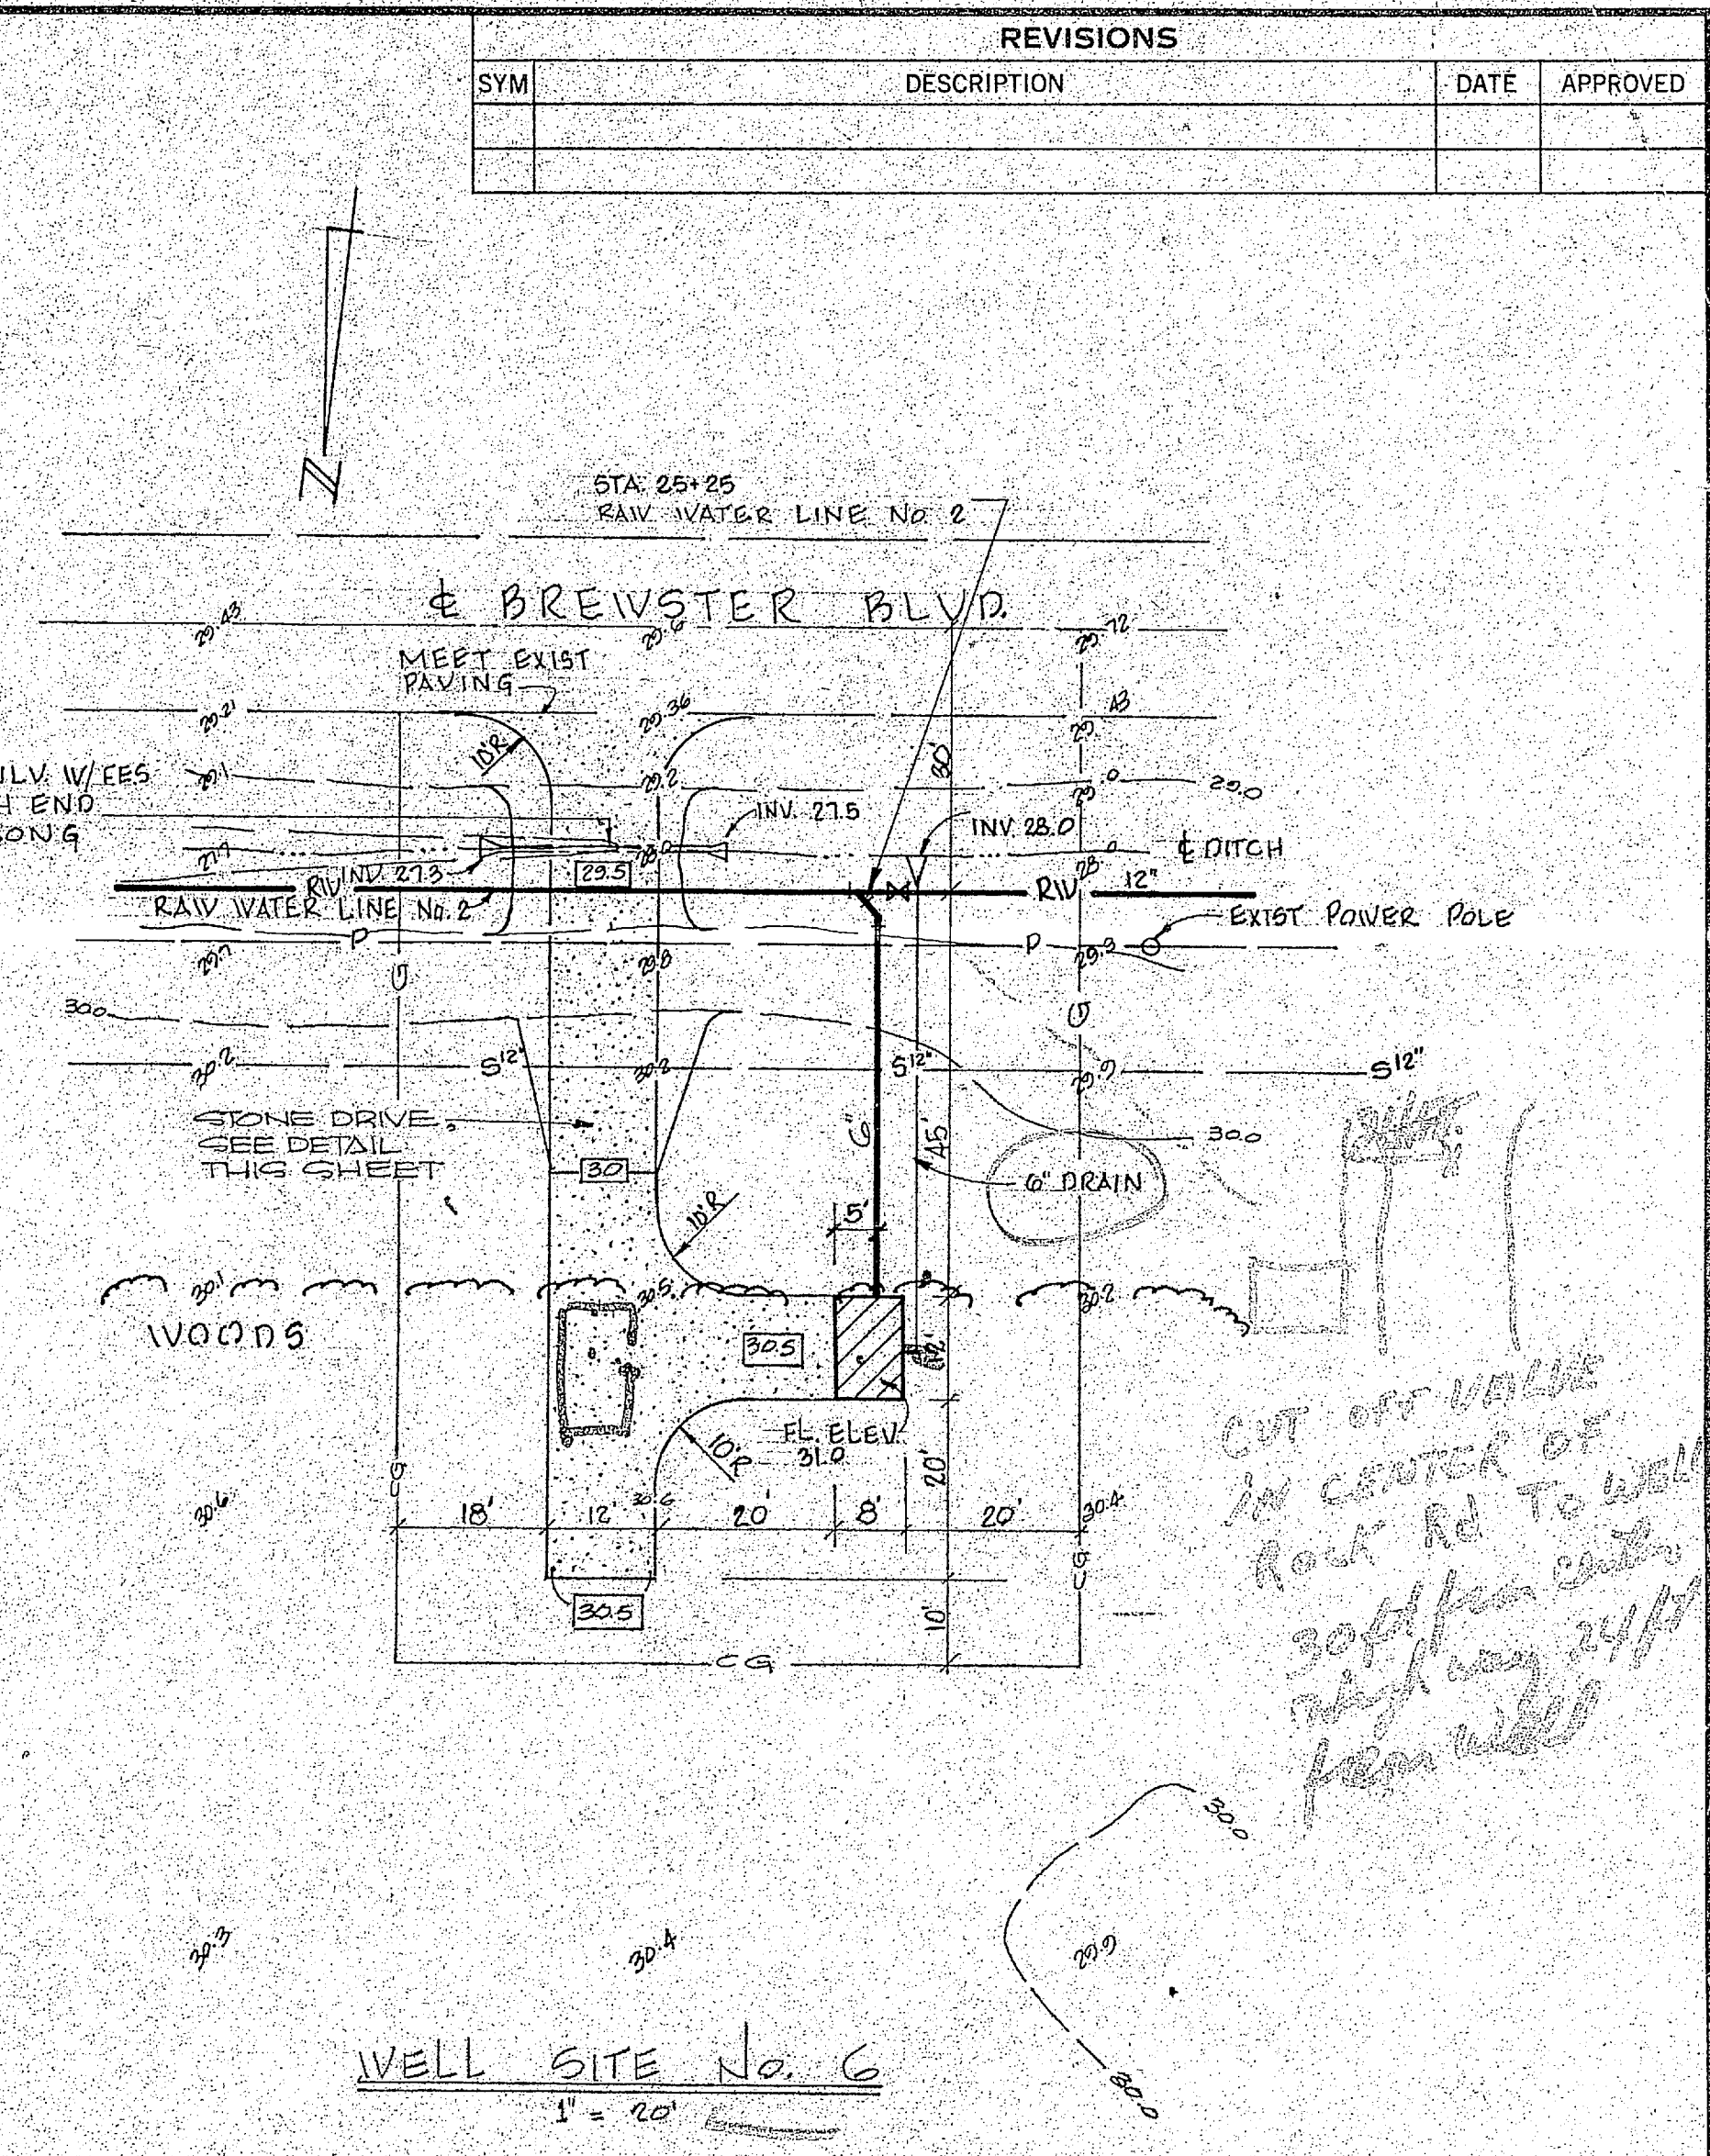 REVISIONS
SYM DESCRIPTION DATE APPROVED
N
STA. 25+25
RAW WATER LINE No. 2
℄ BREWSTER BLVD.
29.43 29.6 29.72
MEET EXIST
PAVING
29.21 29.36 29.43
10'R 30'
W/FES
END
29.1 29.2 29.0 29.0
INV. 27.5
INV. 28.0
27.7 28.0 28.0 ℄ DITCH
INV. 27.3 29.5
RW RW 12"
RAW WATER LINE No. 2
EXIST POWER POLE
P P
29.7 29.8 29.3
30.0
30.2 S12" 30.2 S12" 29.9 S12"
STONE DRIVE,
SEE DETAIL
THIS SHEET
6" 45' 30.0
30 6" DRAIN
10'R 5'
30.1 30.5 30.2
WOODS
30.5 12'
FL. ELEV.
31.0
10'R 20'
30.6 18' 12' 30.6 20' 8' 20' 30.4
30.5 10'
CG
CUT OFF VALVE
IN CENTER OF
ROCK Rd TO WELL
30 ft from center
24 ft
from well
30.0
30.3 30.4 29.9
30.0
WELL SITE No. 6
1" = 20'